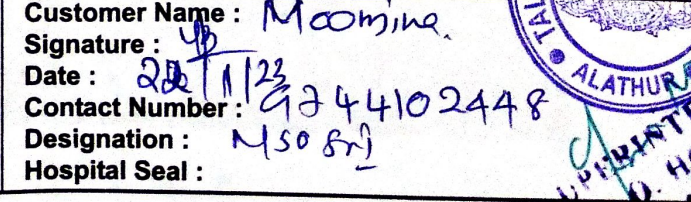 Customer Name : Moomina.
Signature :
Date : 22/11/23
Contact Number : 9744102448
Designation : MSO
Hospital Seal :
TAL
ALATHUR